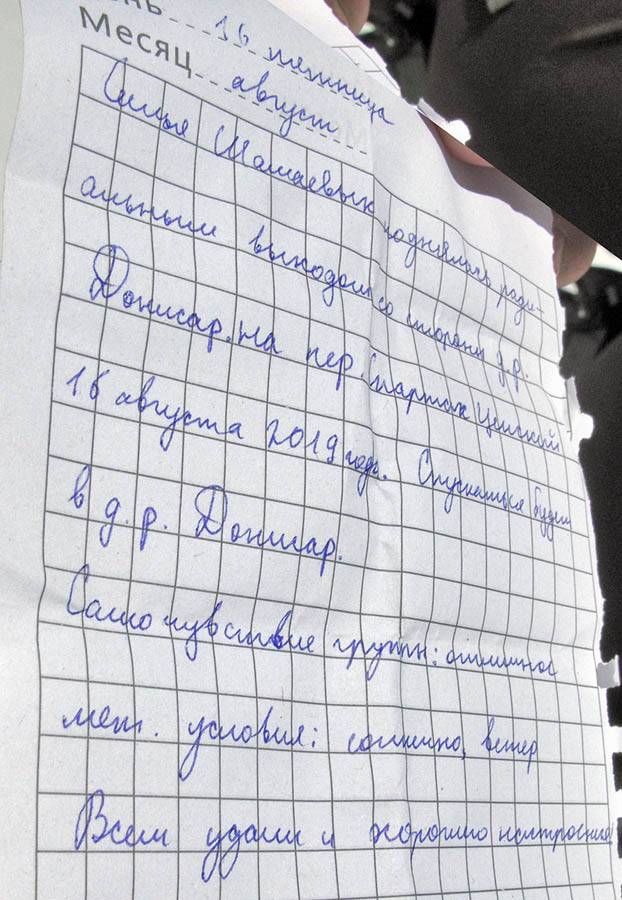 нь 16 пятница
Месяц август
Семья Шамаевых поднялась ради-
альным выходом со стороны д.р.
Донисар. на пер. Спартак Цейский
16 августа 2019 года. Спускаться будем
в д.р. Донисар.
Самочувствие группы: отличное
мет. условия: солнечно, ветер
Всем удачи и хорошего настроения!